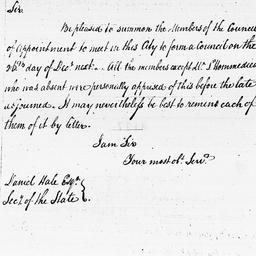 Sir.
Be pleased to summon the Members of the Council
of Appointment to meet in this City to form a Council on the
26th day of Decr. next. All the members except Mr. L'Hommedieu
who was absent were personally apprised of this before the late
adjourned. It may nevertheless be best to remind each of
them of it by letter.
I am Sir
Your most obt. Servt.
Daniel Hale Esqr.
Secy. of the State